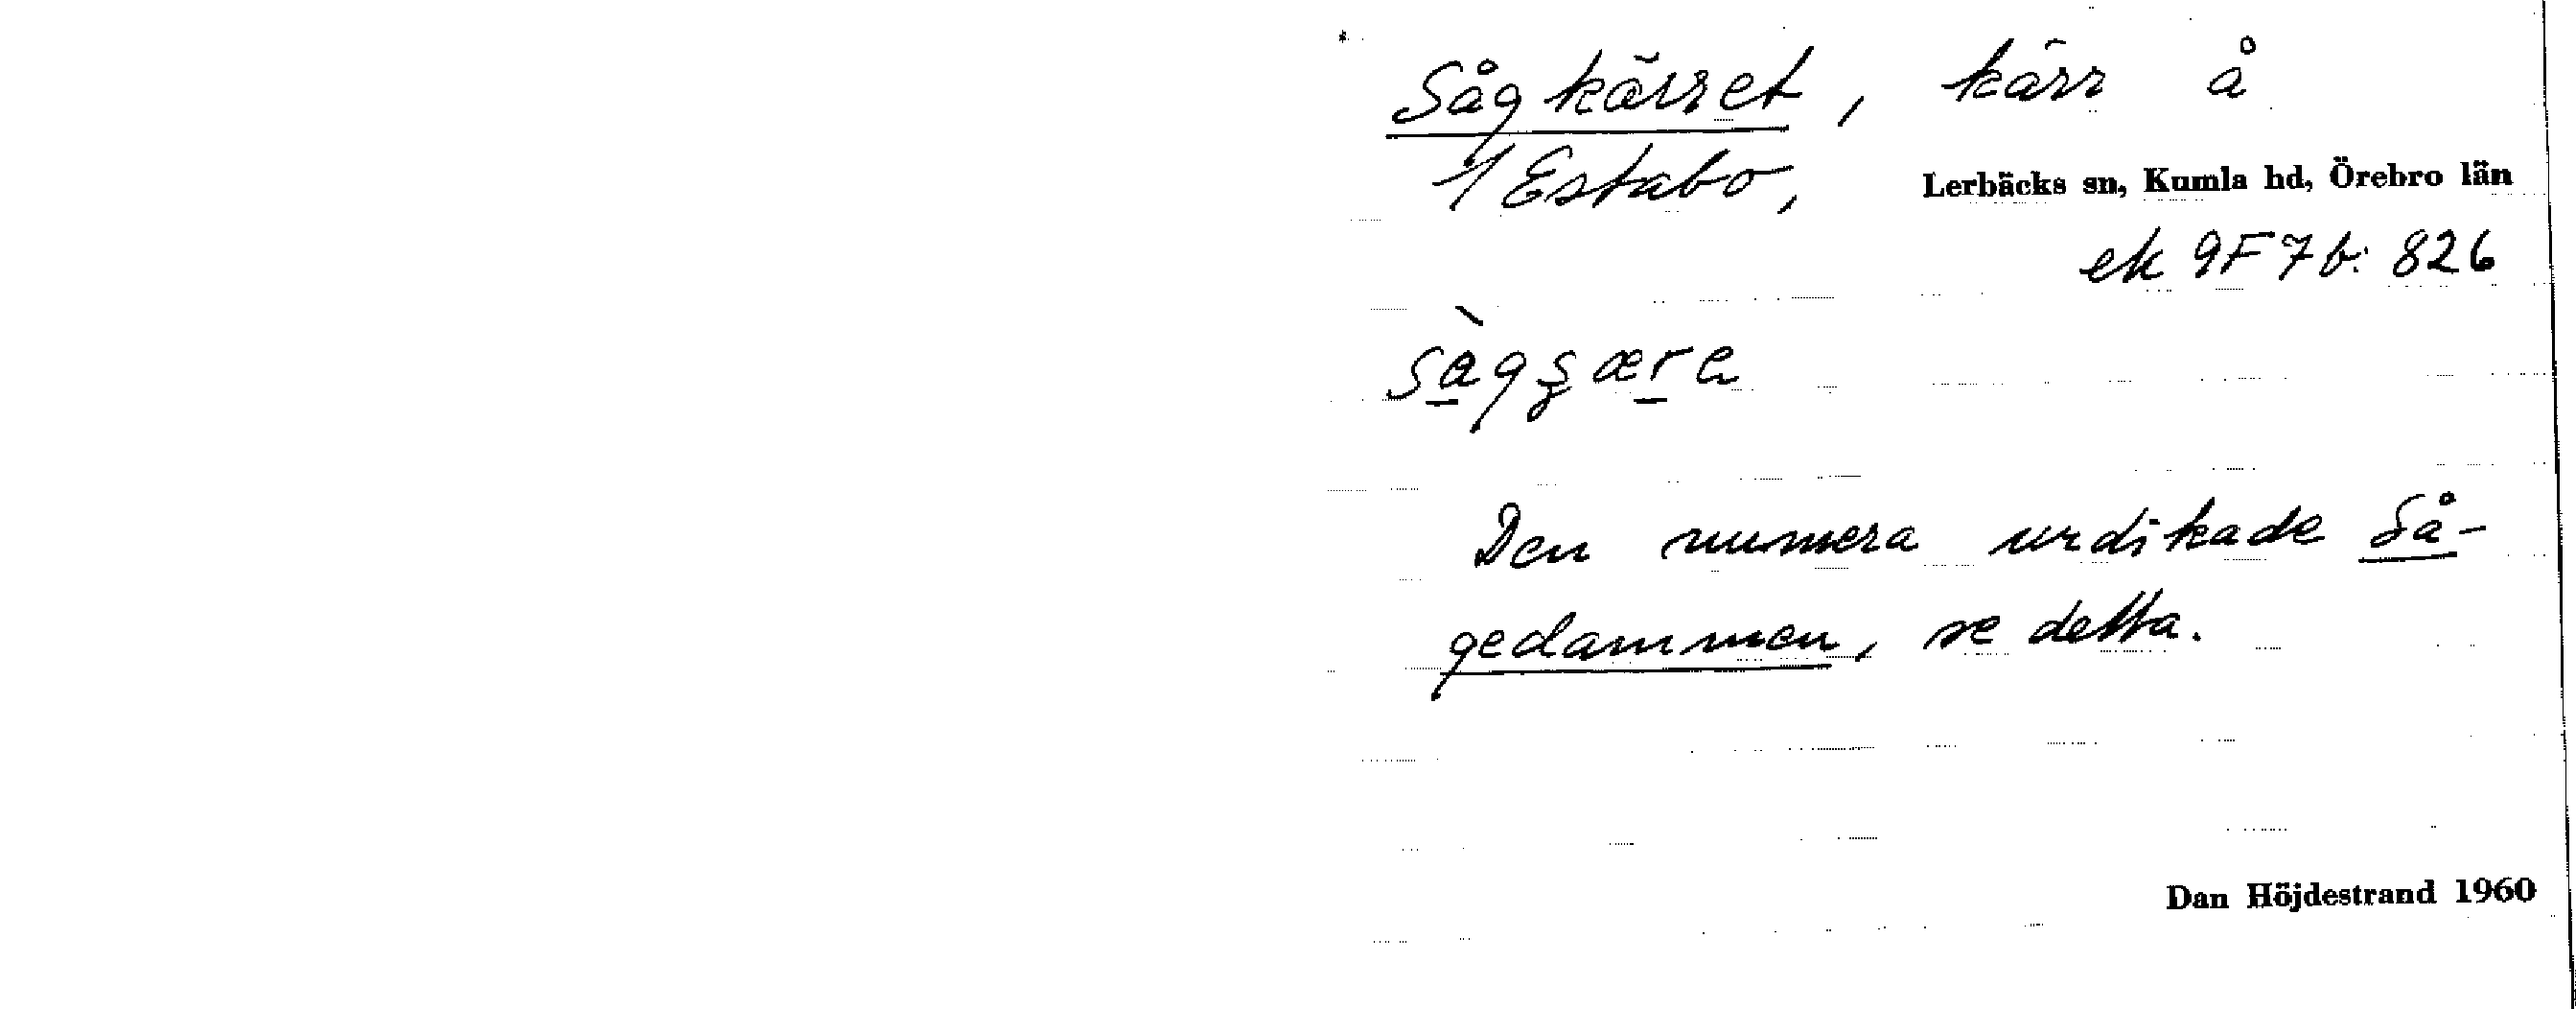 Sågkärret, kärr å
1/ Estabo, Lerbäcks sn, Kumla hd, Örebro län
ek 9F7b: 826
Den numera urdikade Så-
gedammen, se detta.
Dan Höjdestrand 1960